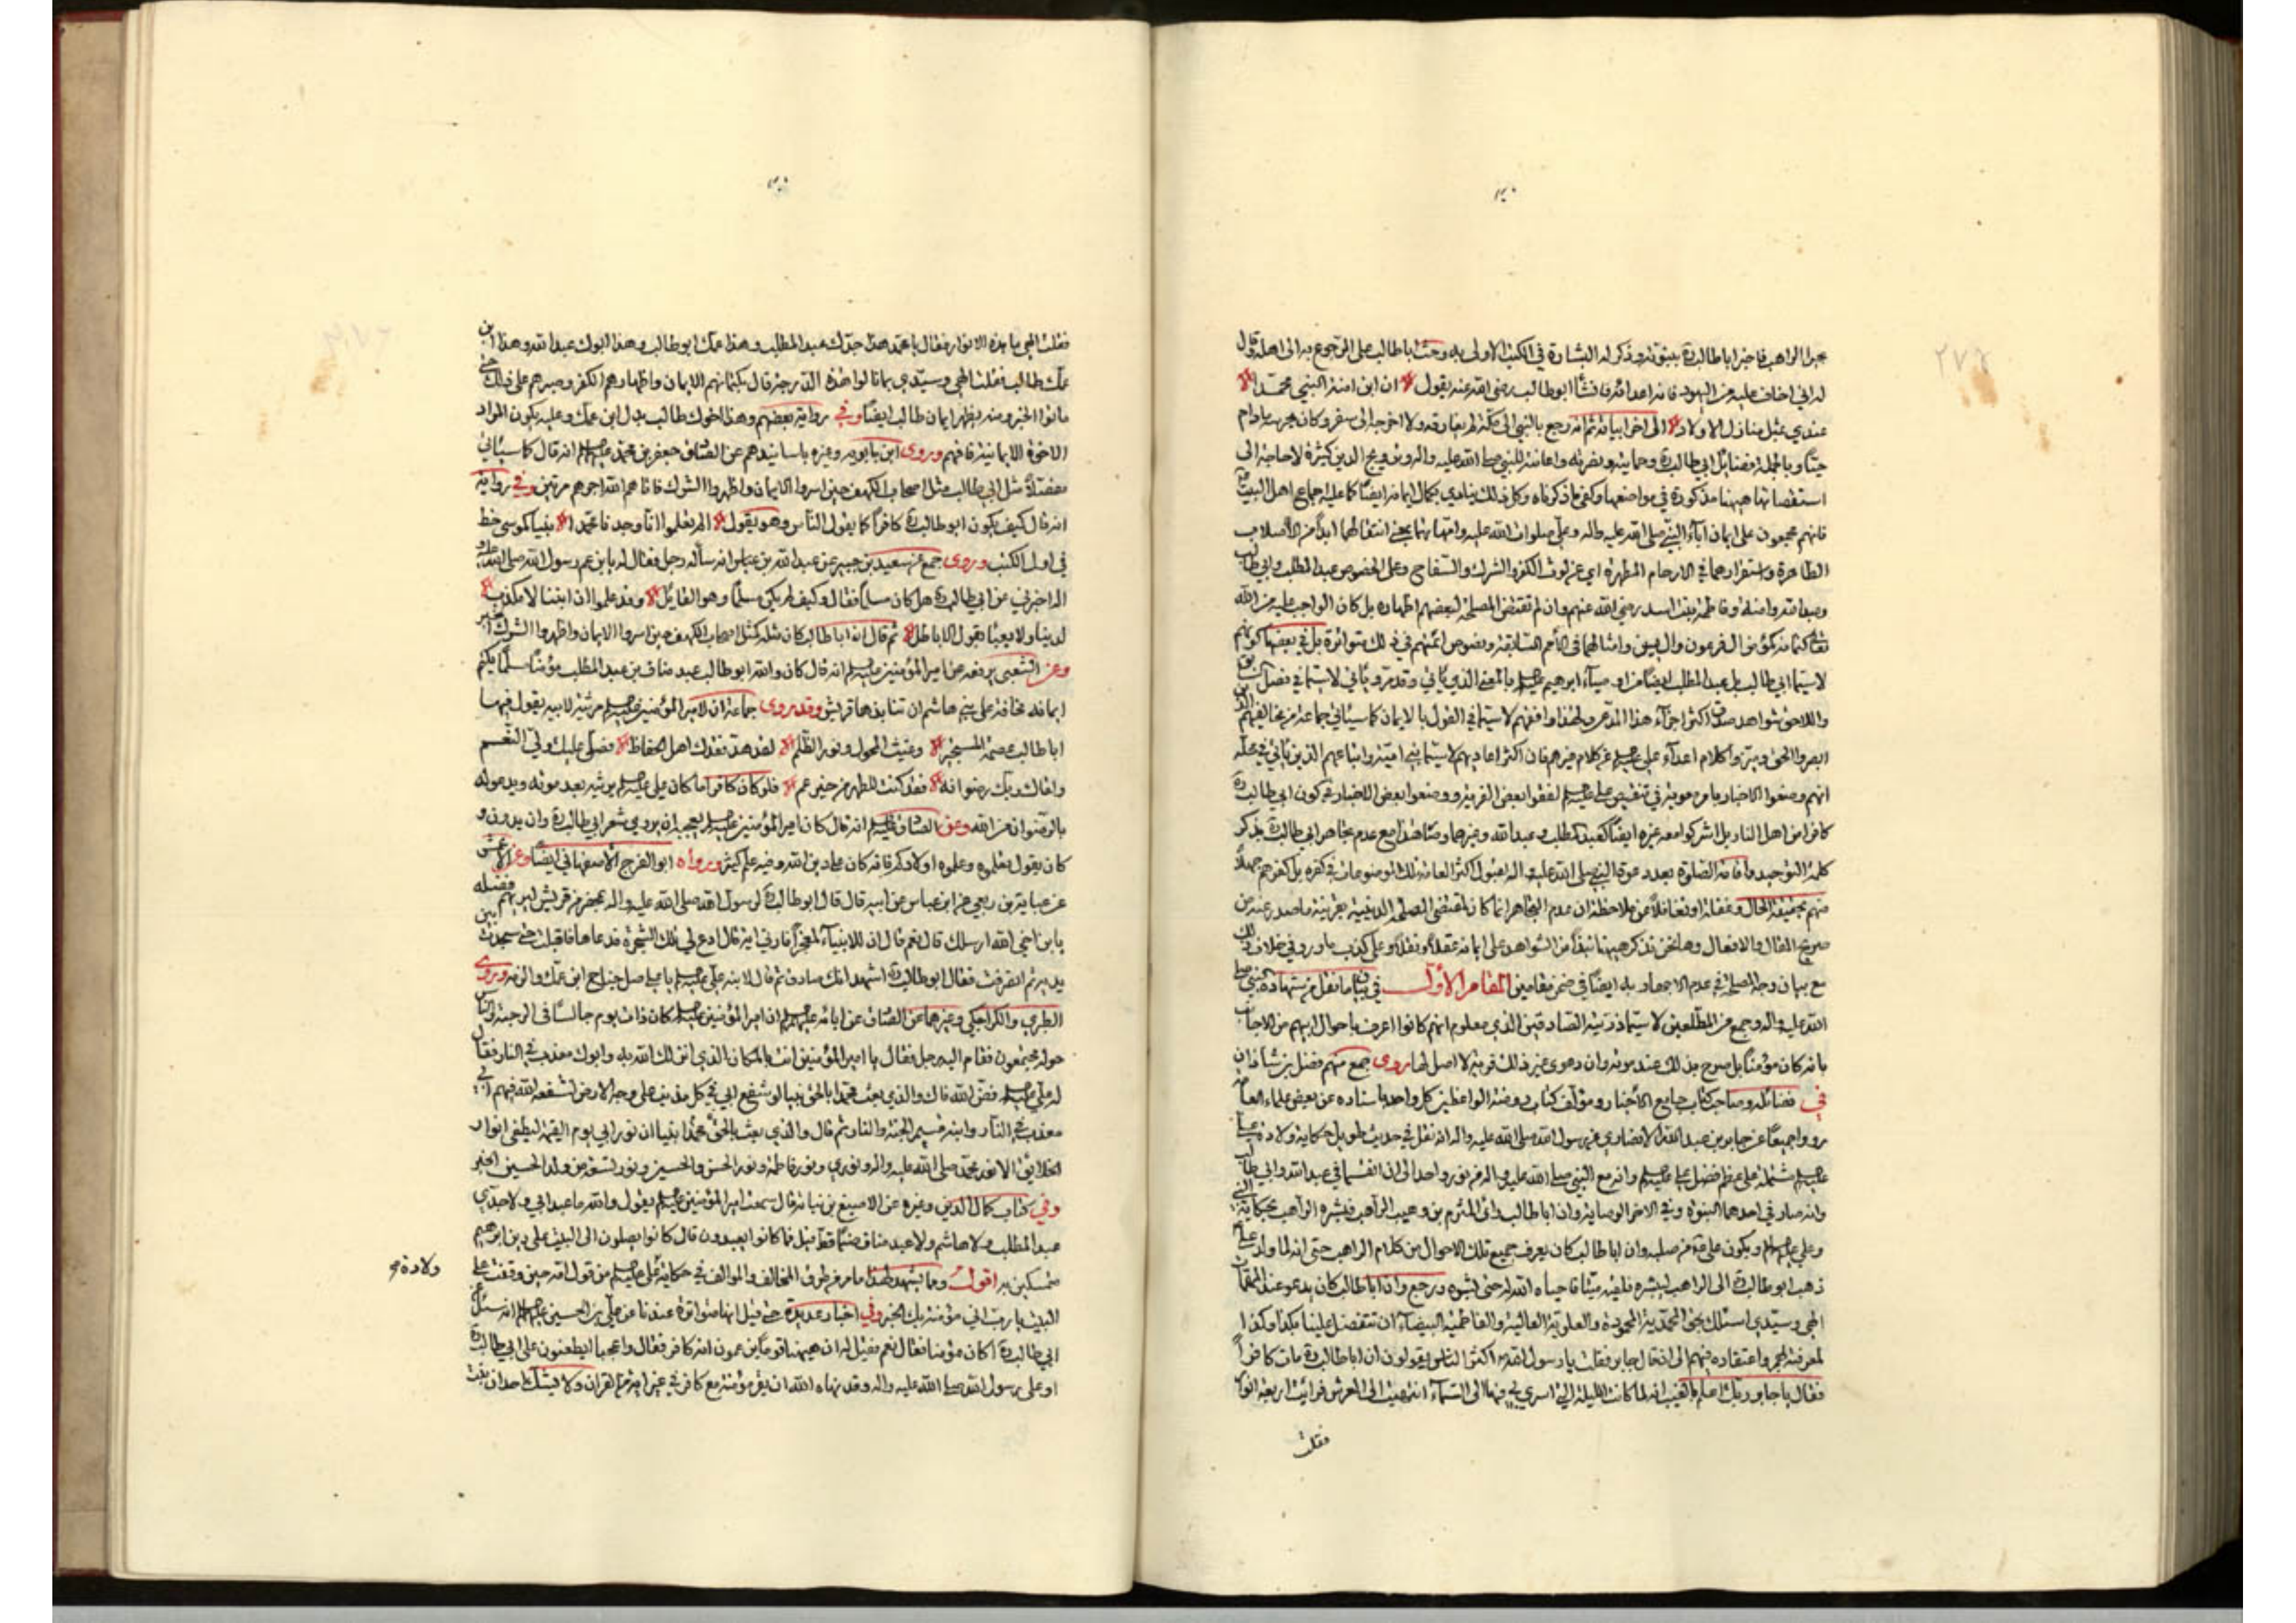 ٢٧٤
بحيرا الراهب فاخبر اباطالب ره بنبوته وذكر له البشارة في الكتب الاولى به وحث اباطالب على الرجوع به الى اهله وقال
له اني اخاف عليه من اليهود فانه اعدائه فانشأ ابوطالب رضي الله عنه يقول ان ابن امنة النبي محمدا
عندي بمثل منازل الاولاد الى اخر ابياته ثم انه رجع بالنبي الى مكة لم يفارقه ولا اخرجه الى سفر وكان يحرسه مادام
حيا وبالجملة فضائل ابي طالب ره وحمايته ونصرته واعانته للنبي صلى الله عليه واله وترويج الدين كثيرة لا حاجة الى
استقصائها ههنا مذكورة في مواضعها وكفى ما ذكرناه وكل ذلك ينادي بكمال ايمانه ايضا كما عليه اجماع اهل البيت
فانهم مجمعون على ايمان اباء النبي صلى الله عليه واله وعلي صلوات الله عليه وامهاتهما يعني انتقالهما ابدا من الاصلاب
الطاهرة واستقرارهما في الارحام المطهرة اي عن لوث الكفر والشرك والسفاح وعلى الخصوص عبد المطلب وابي طالب
وعبدالله وامنة وفاطمة بنت اسد رضي الله عنهم وان لم تقتض المصلحة لبعضهم اظهاره بل كان الواجب عليه من الله
تعالى كتمانه كمؤمن ال فرعون وال يس وامثالهما في الامم السابقة ونصوص ائمتهم في ذلك متواترة بل في بعضها كونهم
لاسيما ابي طالب بل عبد المطلب ايضا من اوصياء ابرهيم بالمعنى الذي يأتي وقد مر ويأتي لاسيما في فصل
واللاحق شواهد صدق اكثر اجزاء هذا المدعى ولهذا وافقهم لاسيما في القول بالايمان كما سيأتي جماعة من مخالفيهم
ابصروا الحق وميزوا كلام اعداء علي عن كلام غيرهم فان اكثر اعاديهم لاسيما بني امية واتباعهم الذين يأتي في محله
انهم وضعوا الاخبار بامر معوية في تنقيص علي لفقوا بعض الفرية ووضعوا بعض الاخبار في كون ابي طالب ره
كافرا من اهل النار بل اشركوا معه غيره ايضا كعبد المطلب وعبدالله وغيرهما وصادف هذا مع عدم تجاهر ابي طالب ره بذكر
كلمة التوحيد واقامة الصلوة بعد دعوة النبي صلى الله عليه واله لقبول اكثر العامة تلك الموضوعات في كفره بل كفرهم جهلا
منهم بحقيقة الحال وغفلة او تغافلا عن ملاحظة ان عدم التجاهر انما كان لمقتضى المصلحة الدينية بقرينة ما صدر عنه من
صريح المقال والافعال وها نحن نذكر ههنا نبذا من الشواهد على ايمانه عقلا ونقلا وعلى كذب ما ورد في خلاف ذلك
مع بيان وجه المصلحة في عدم الاجهار به ايضا في ضمن مقامين المقام الاول في بيان ما نقل من شهادة النبي صلى
الله عليه واله وجمع من المطلعين لاسيما ذريته الصادقين الذي معلوم انهم كانوا اعرف باحوال ابيهم من الاجانب
بانه كان مؤمنا بل صرح بذلك عند موته وان دعوى غير ذلك فرية لا اصل لها روى جمع منهم فضل بن شاذان
في فضائله وصاحب كتاب جامع الاخبار ومؤلف كتاب روضة الواعظين كل واحد باسناده عن بعض علماء العامة
رووا جميعا عن جابر بن عبد الله الانصاري عن رسول الله صلى الله عليه واله انه نقل في حديث طويل حكاية ولادة علي
مشتملة على عظم فضل علي وانه مع النبي صلى الله عليه واله من نور واحد الى ان انقسما في عبدالله وابي طالب
وانه صار في احدهما النبوة وفي الاخر الوصاية وان اباطالب اتى المثرم بن دعيب الراهب فبشره الراهب بحكاية النبي
وعلي ويكون علي من صلبه وان اباطالب كان يعرف جميع تلك الاحوال من كلام الراهب حتى انه لما ولد علي
ذهب ابوطالب ره الى الراهب ليبشره فلقيه ميتا فاحياه الله له حتى بشره ورجع وان اباطالب كان يدعو عند
الهي وسيدي اسئلك بحق المحمدية المحمودة والعلوية العالية والفاطمية البيضاء ان تتفضل علينا بكذا وكذا
لمعرفته بهم واعتقاده فيهم الى ان قال جابر فقلت يا رسول الله اكثر الناس يقولون ان اباطالب ره مات كافرا
فقال يا جابر ربك اعلم بالغيب انه لما كانت الليلة التي اسري بي فيها الى السماء انتهيت الى العرش فرأيت اربعة انوار
فقلت
فقلت الهي ما هذه الانوار فقال يا محمد هذا جدك عبد المطلب وهذا عمك ابوطالب وهذا ابوك عبدالله وهذا ابن
عمك طالب فقلت الهي وسيدي بما نالوا هذه الدرجة قال بكتمانهم الايمان واظهارهم الكفر وصبرهم على ذلك حتى
ماتوا الخبر ومنه يظهر ايمان طالب ايضا وفي رواية بعضهم وهذا اخوك طالب بدل ابن عمك وعليه يكون المراد
الاخوة الايمانية فافهم وروى ابن بابويه وغيره باسانيدهم عن الصادق جعفر بن محمد انه قال كما سيأتي
مفصلا مثل ابي طالب مثل اصحاب الكهف حين اسروا الايمان واظهروا الشرك فاتاهم الله اجرهم مرتين وفي رواية
انه قال كيف يكون ابوطالب ره كافرا كما يقول الناس وهو يقول الم تعلموا انا وجدنا محمدا نبيا كموسى خط
في اول الكتب وروى جمع عن سعيد بن جبير عن عبدالله بن عباس انه سأله رجل فقال له يابن عم رسول الله صلى الله عليه
واله اخبرني عن ابي طالب ره هل كان مسلما فقال وكيف لم يكن مسلما وهو القائل وقد علموا ان ابننا لا مكذب
لدينا ولا يعبأ بقول الاباطل ثم قال ان اباطالب كان مثله كمثل اصحاب الكهف حين اسروا الايمان واظهروا الشرك الخبر
وعن الشعبي يرفعه عن امير المؤمنين انه قال كان والله ابوطالب عبد مناف بن عبد المطلب مؤمنا مسلما يكتم
ايمانه مخافة على بني هاشم ان تنابذها قريش وقد روى جماعة ان لامير المؤمنين مرثية لابيه يقول فيها
اباطالب عصمة المستجير وغيث المحول ونور الظلم لقد هد فقدك اهل الحفاظ فصلى عليك ولي النعم
ولقاك ربك رضوانه فقد كنت للطهر من خير عم فلو كان كافرا ما كان علي يرثيه بعد موته ويدعو له
بالرضوان من الله وعن الصادق انه قال كان امير المؤمنين يعجبه ان يروى شعر ابي طالب ره وان يدون و
كان يقول تعلموه وعلموه اولادكم فانه كان على دين الله وفيه علم كثير ورواه ابوالفرج الاصفهاني ايضا وعن الاعمش
عن عباية بن ربعي عن ابن عباس عن ابيه قال قال ابوطالب ره لرسول الله صلى الله عليه واله بمحضر من قريش ليريهم فضله
يابن اخي الله ارسلك قال نعم قال ان للانبياء معجزا فارني اية قال ادع لي تلك الشجرة فدعاها فاقبلت حتى سجدت بين
يديه ثم انصرفت فقال ابوطالب ره اشهد انك صادق ثم قال لابنه علي يا علي صل جناح ابن عمك والزمه وروى
الطبري والكراجكي وغيرهما عن الصادق عن ابائه ان امير المؤمنين كان ذات يوم جالسا في الرحبة والناس
حوله مجتمعون فقام اليه رجل فقال يا امير المؤمنين انت بالمكان الذي انزلك الله به وابوك معذب في النار فقال
له علي فض الله فاك والذي بعث محمدا بالحق نبيا لو شفع ابي في كل مذنب على وجه الارض لشفعه الله فيهم ابي
معذب في النار وابنه قسيم الجنة والنار ثم قال والذي بعث بالحق محمدا نبيا ان نور ابي يوم القيمة ليطفي انوار
الخلائق الا نور محمد صلى الله عليه واله ونوري ونور فاطمة ونور الحسن والحسين ونور تسعة من ولد الحسين الخبر
وفي كتاب كمال الدين وغيره عن الاصبغ بن نباتة قال سمعت امير المؤمنين يقول والله ما عبد ابي ولا جدي
عبد المطلب ولا هاشم ولا عبد مناف صنما قط قيل فما كانوا يعبدون قال كانوا يصلون الى البيت على دين ابرهيم
متمسكين به اقول ومما يشهد لهذا ما مر من طرق المخالف والموالف في حكاية علي من قول امه حين وقفت على
ولادة
البيت يا رب اني مؤمنة بك الخبر وفي اخبار عديدة حتى قيل انها متواترة عندنا عن علي بن الحسين انه سئل عن
ابي طالب ره اكان مؤمنا فقال نعم فقيل له ان ههنا قوما يزعمون انه كافر فقال واعجبا ايطعنون على ابي طالب ره
او على رسول الله صلى الله عليه واله وقد نهاه الله ان يقر مؤمنة مع كافر في غير اية من القران ولا يشك احد ان بنت